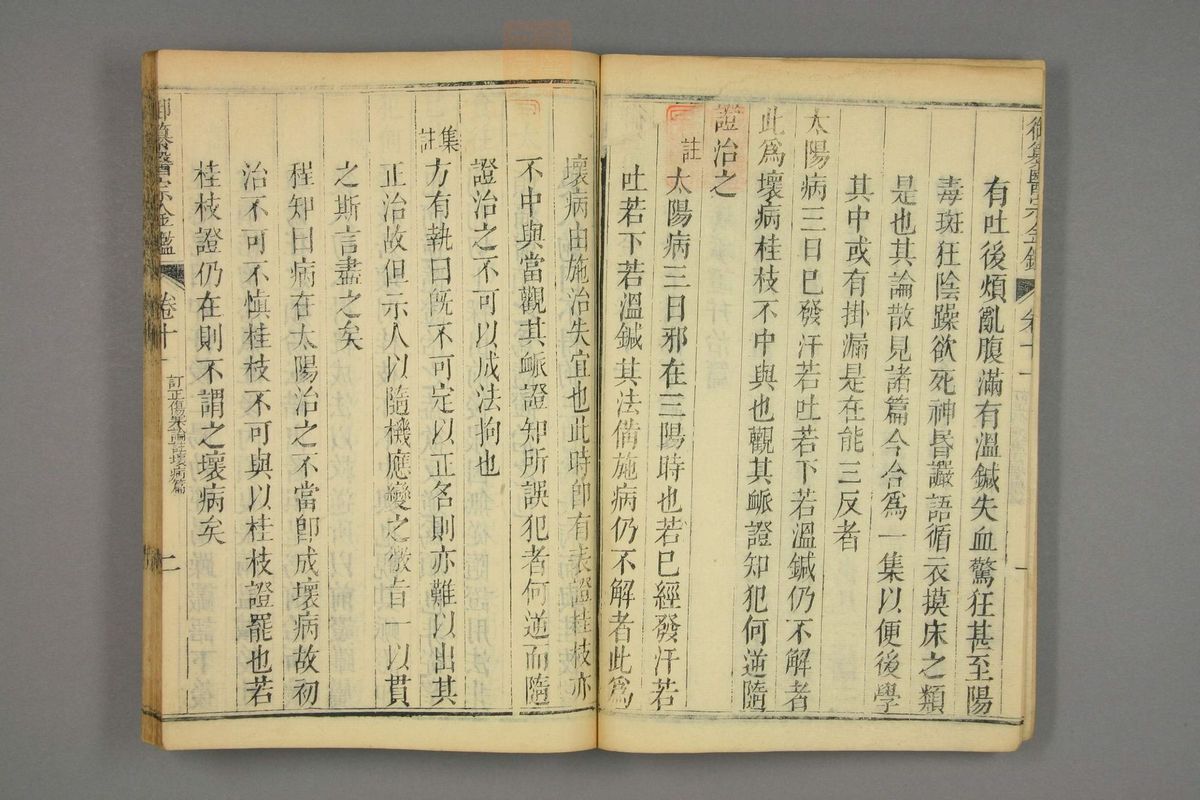 御纂醫宗金鑑 卷十一 一
有吐後煩亂腹滿有溫鍼失血驚狂甚至陽
毒斑狂陰躁欲死神昏讝語循衣摸床之類
是也其論散見諸篇今合爲一集以便後學
其中或有掛漏是在能三反者
太陽病三日已發汗若吐若下若溫鍼仍不解者
此爲壞病桂枝不中與也觀其脈證知犯何逆隨
證治之
註 太陽病三日邪在三陽時也若已經發汗若
吐若下若溫鍼其法備施病仍不解者此爲
壞病由施治失宜也此時卽有表證桂枝亦
不中與當觀其脈證知所誤犯者何逆而隨
證治之不可以成法拘也
集註 方有執曰旣不可定以正名則亦難以出其
正治故但示人以隨機應變之微旨一以貫
之斯言盡之矣
程知曰病在太陽治之不當卽成壞病故初
治不可不慎桂枝不可與以桂枝證罷也若
桂枝證仍在則不謂之壞病矣
御纂醫宗金鑑 卷十一 訂正傷寒論註壞病篇 二